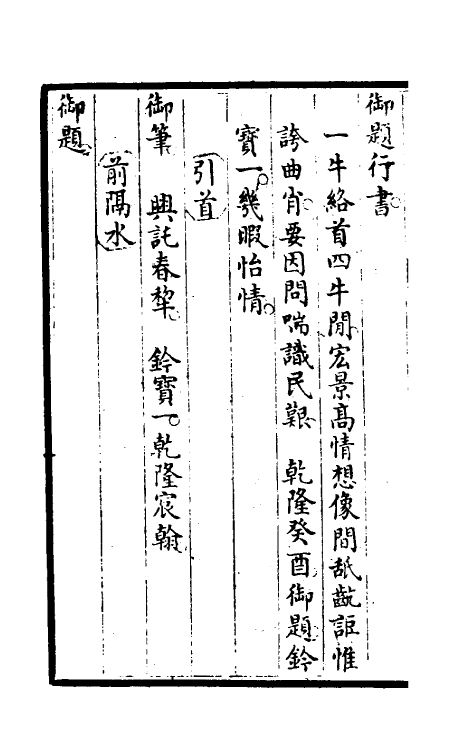 御題行書
一牛絡首四牛閒宏景高情想像間舐齕詎惟
誇曲肖要因問喘識民艱　乾隆癸酉御題鈐
寶一。幾暇怡情。
引首
御筆　興託春犂　鈐寶一。乾隆宸翰
前隔水
御題